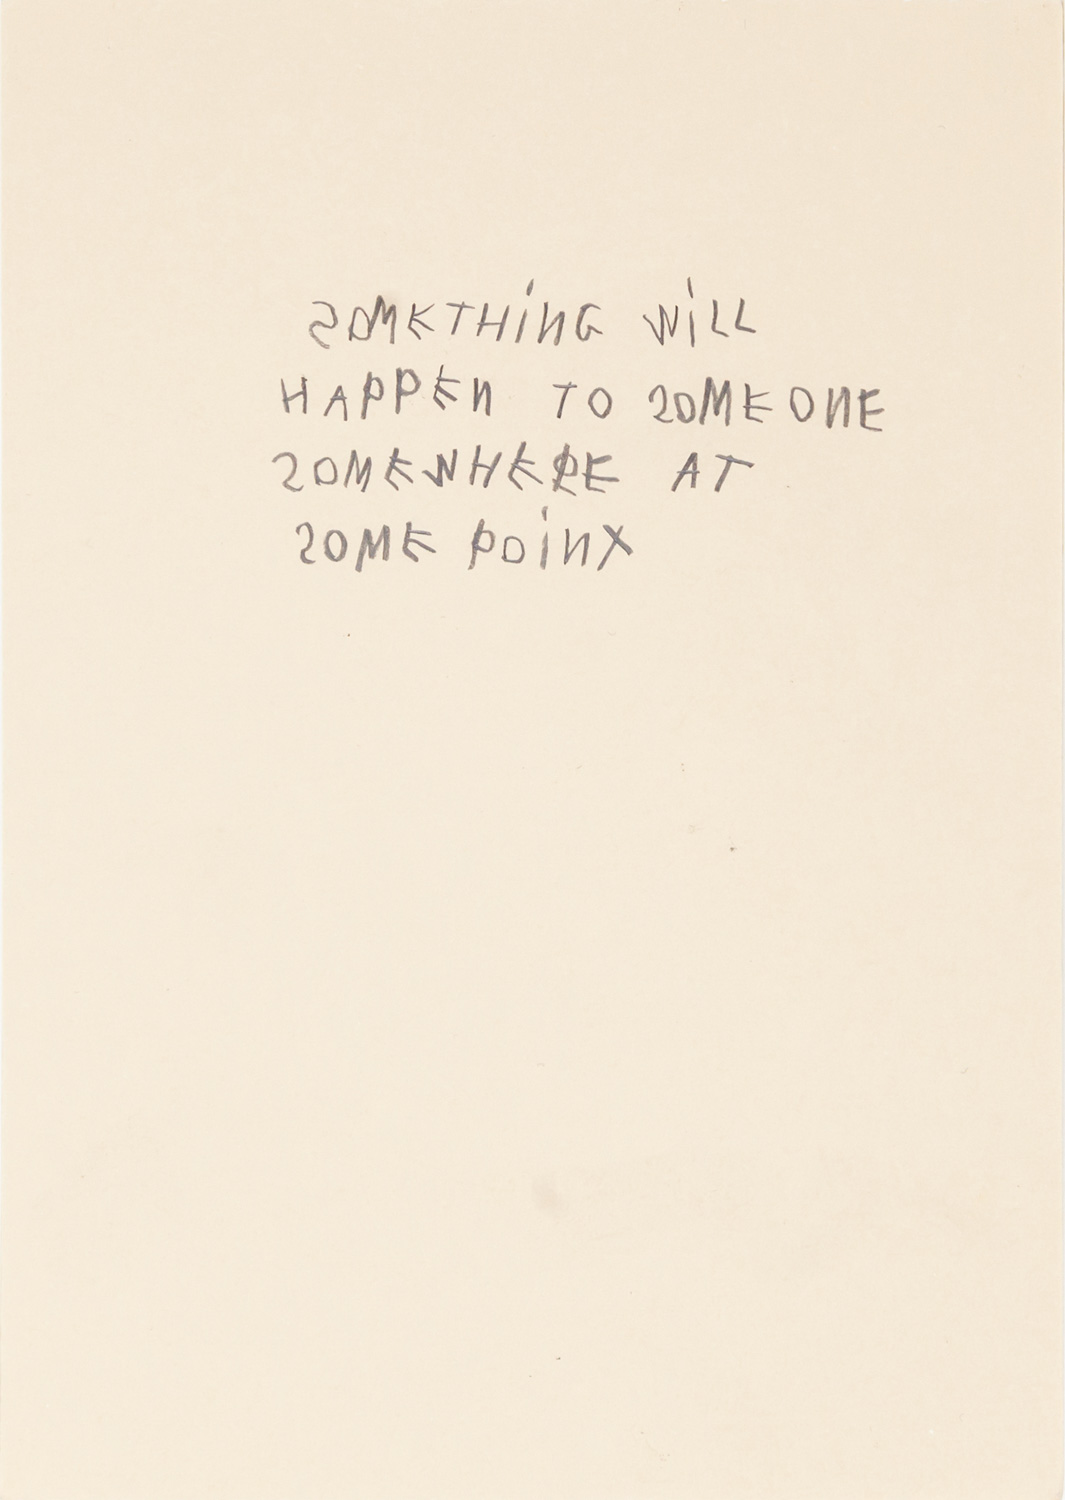 SOMETHiNG WiLL
HAPPEN TO SOMEONE
SOMEWHERE AT
SOME POiNT